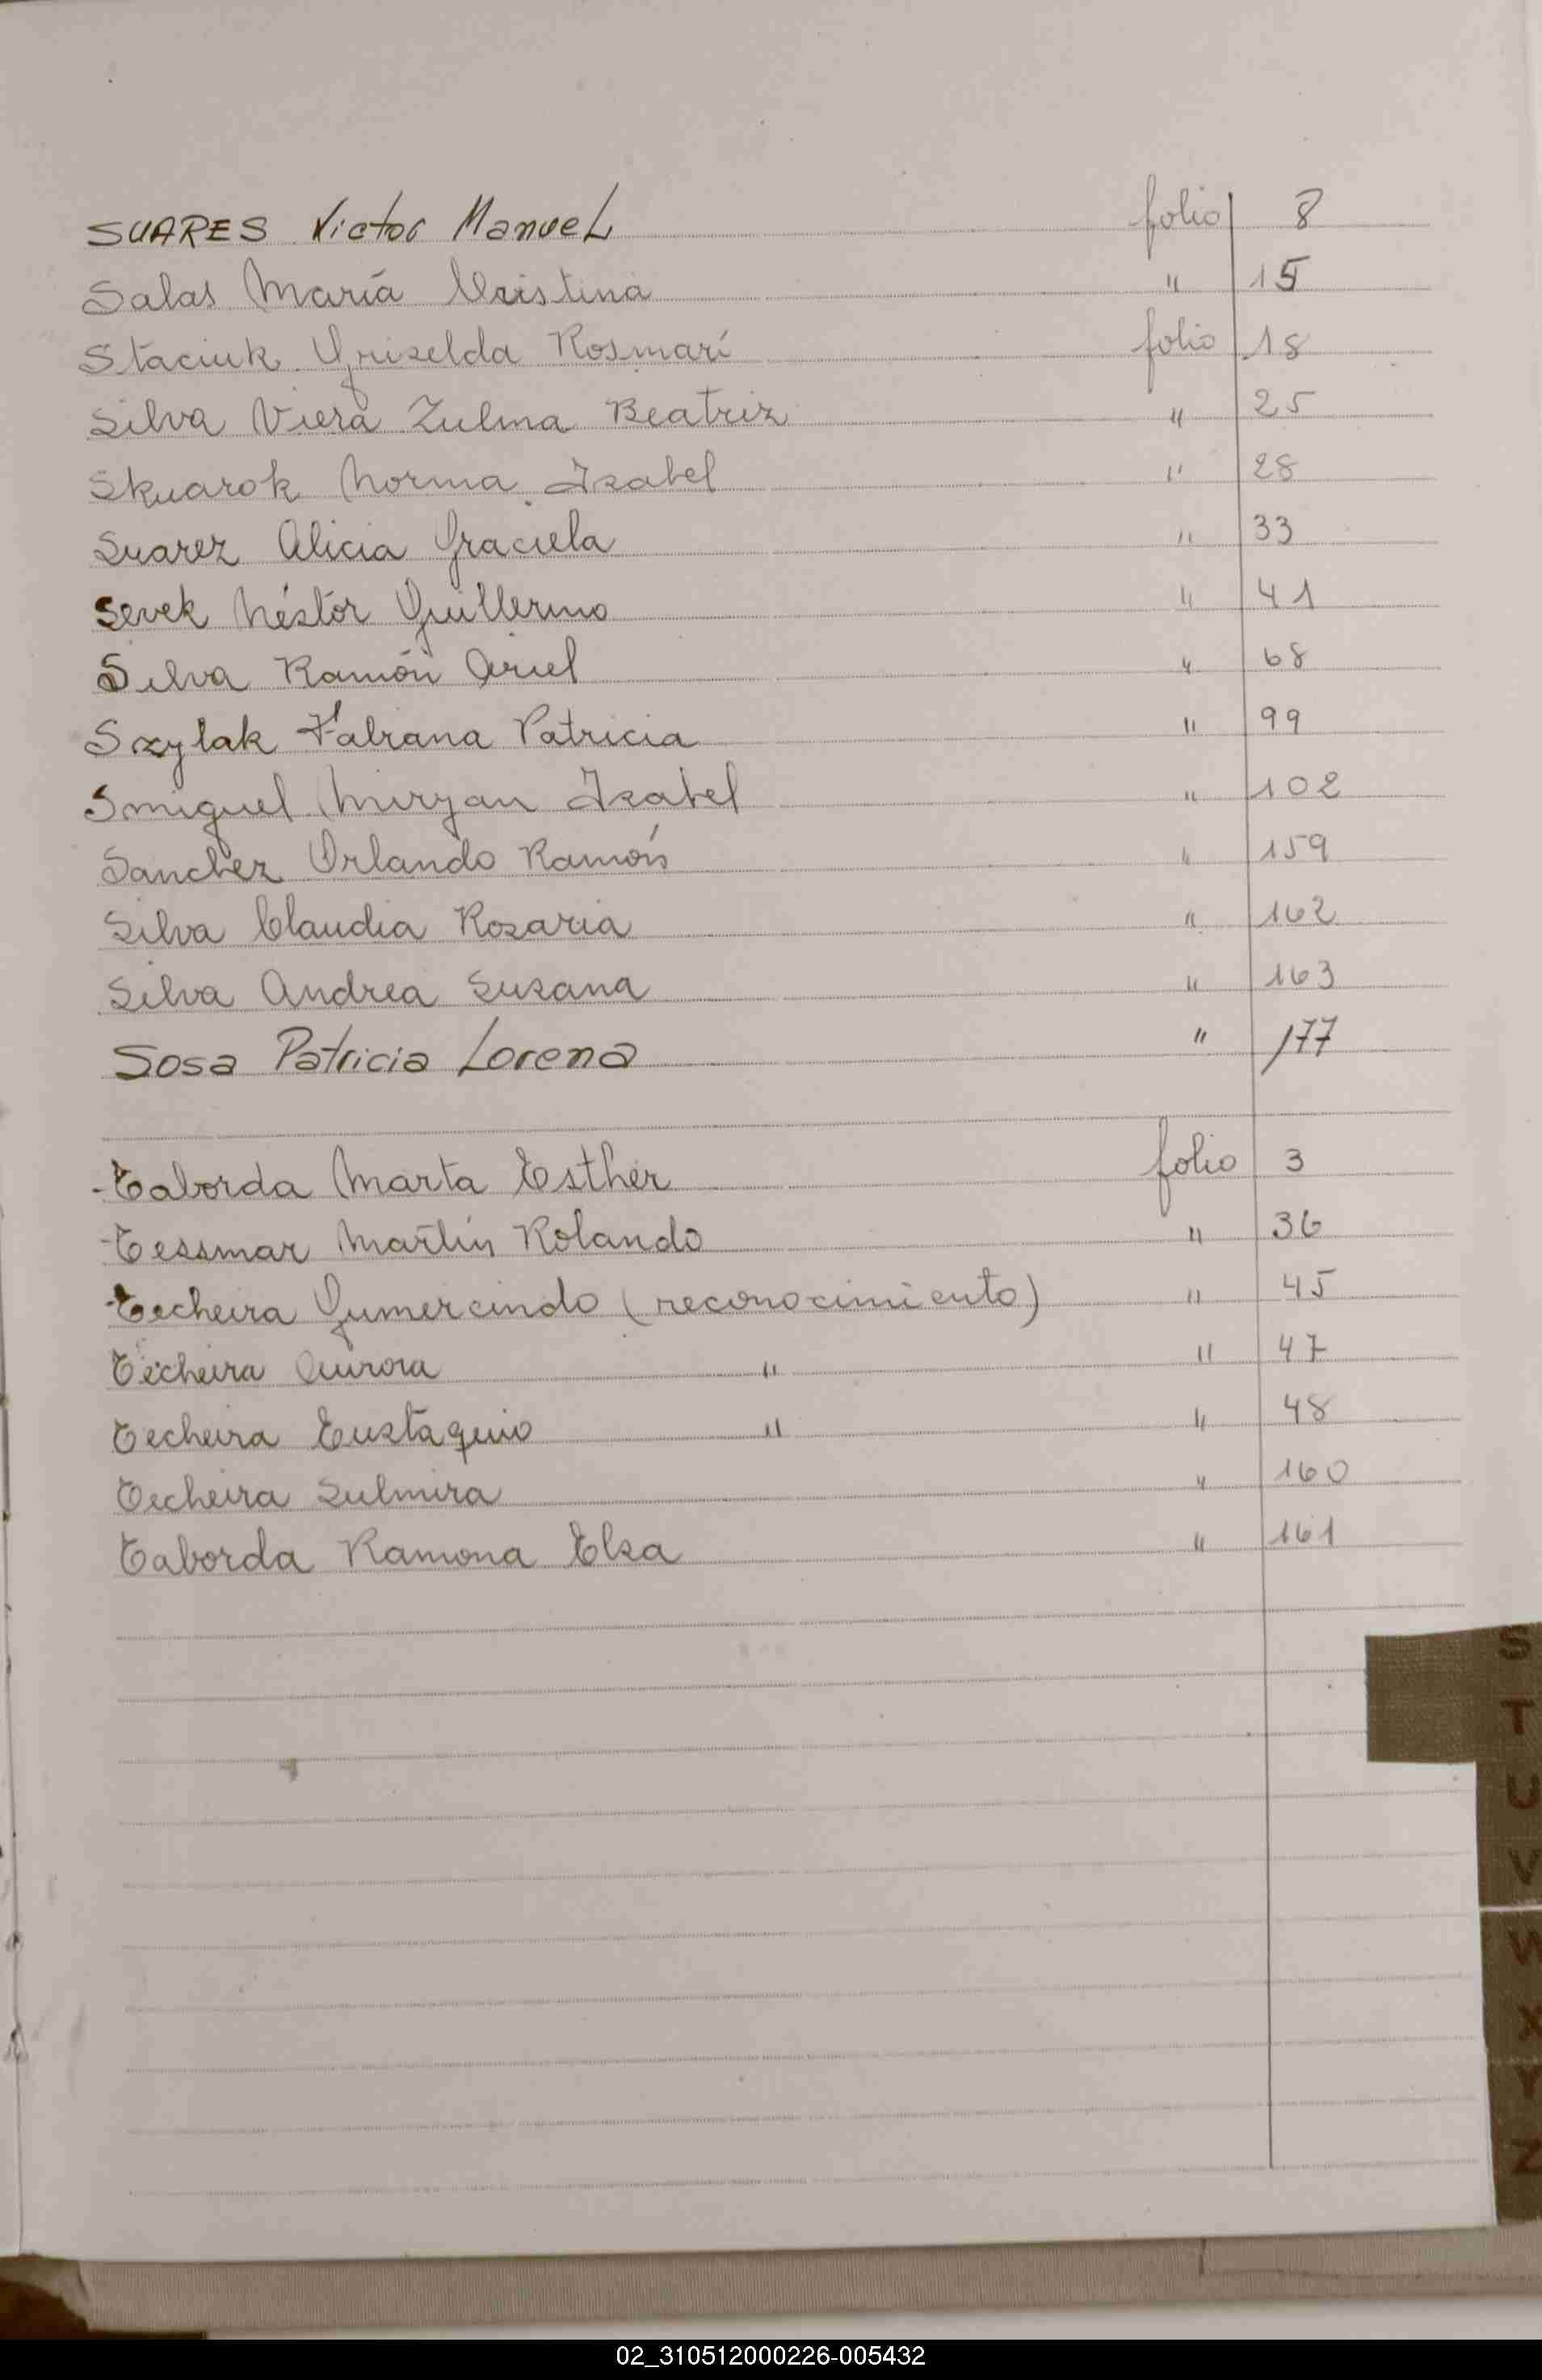 SUARES Victor Manuel folio 8
Salas María Cristina " 15
Staciuk Griselda Rosmarí folio 18
Silva Viera Zulma Beatriz " 25
Skuarok Norma Isabel " 28
Suarez Alicia Graciela " 33
Sevek Néstor Guillermo " 41
Silva Ramón Ariel " 68
Szylak Fabiana Patricia " 99
Smiguel Miryan Isabel " 102
Sanchez Orlando Ramón " 159
Silva Claudia Rosaria " 162
Silva Andrea Susana " 163
Sosa Patricia Lorena " 177
Taborda Marta Esther folio 3
Tessmar Martín Rolando " 36
Techeira Gumercindo (reconocimiento) " 45
Techeira Aurora " " 47
Techeira Eustaquio " " 48
Techeira Sulmira " 160
Taborda Ramona Elsa " 161
S
T
U
V
W
X
Y
Z
02_310512000226-005432